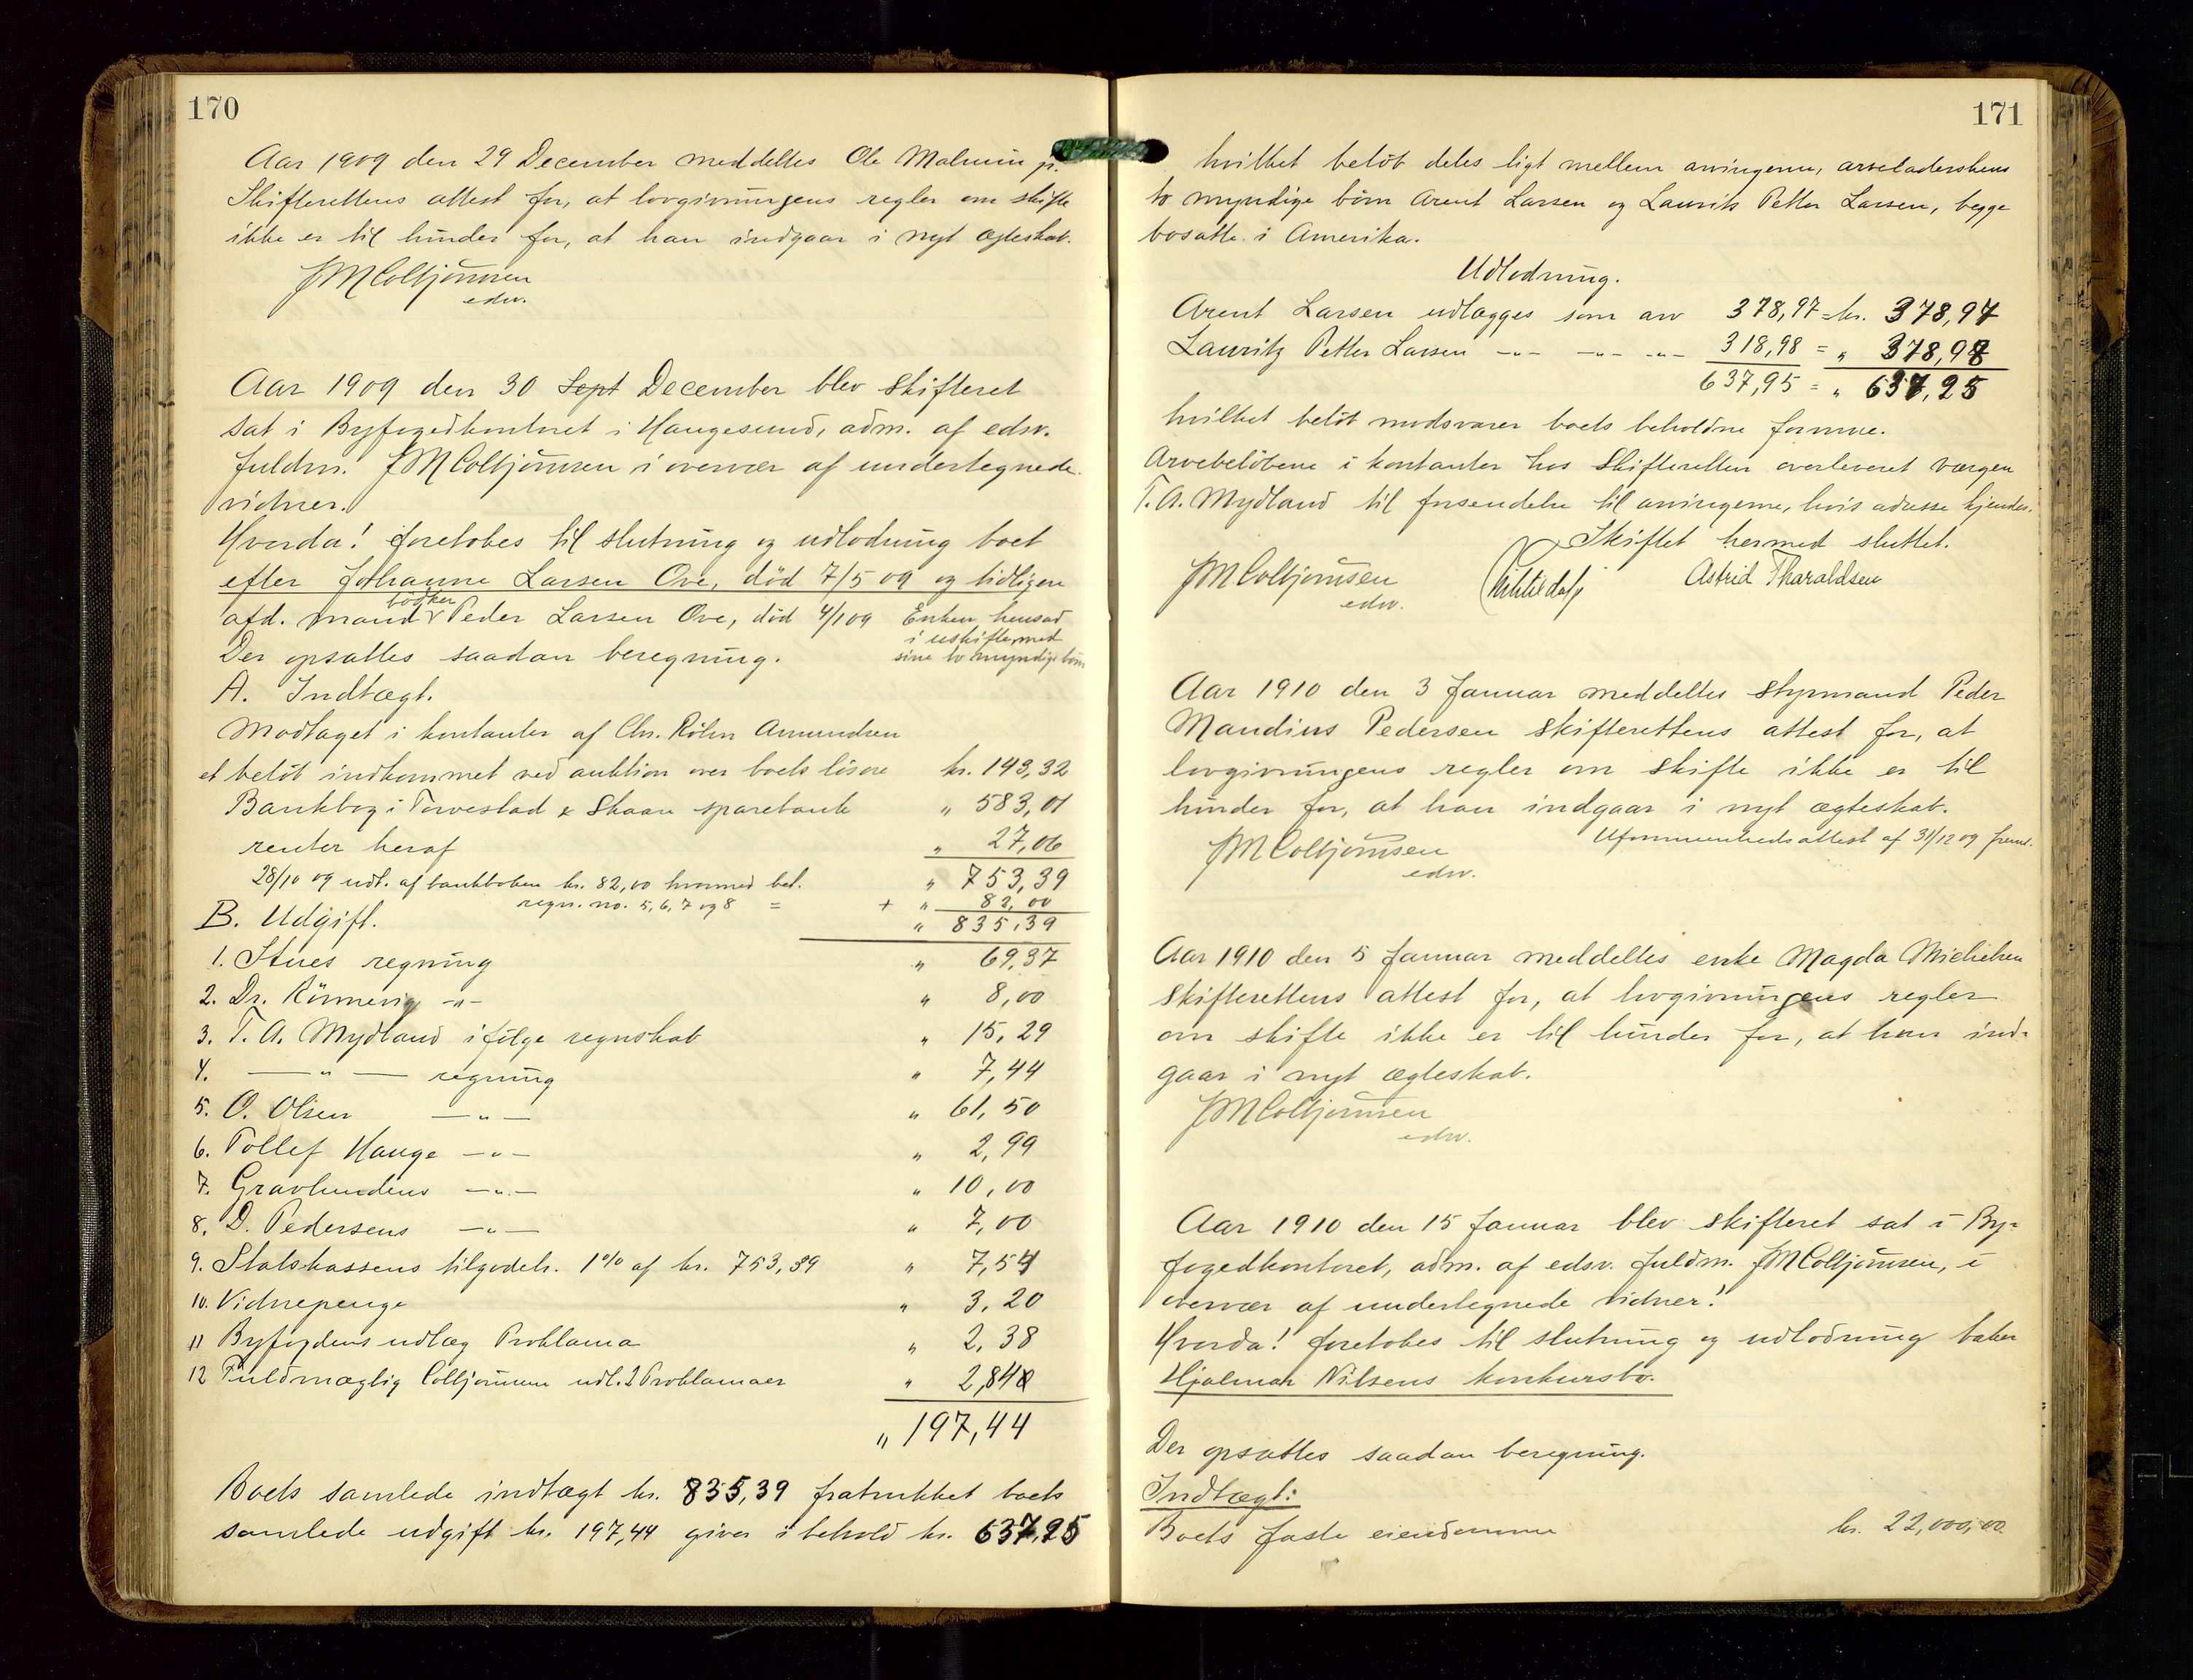 170
Aar 1909 den 29 December meddeltes Ole Malmin jr.
Skifterettens attest for, at lovgivningens regler om skifte
ikke er til hinder for, at han indgaar i nyt ægteskab.
JMColbjørnsen
edsv.
Aar 1909 den 30 Sept December blev skifteret
sat i Byfogedkontoret i Haugesund, adm. af edsv.
fuldm. JMColbjørnsen i overvær af undertegnede
vidner.
Hvorda! foretokes til slutning og udlodning boet
efter Johanne Larsen Ove, död 7/5 09 og tidligere
afd. mand bödker Peder Larsen Ove, död 4/1 09 Enken hensad
i uskifte med
sine to myndige børn
Der opsattes saadan beregning.
A. Indtægt.
Modtaget i kontanter af Chr. Röhn Amundsen
et belöb indkommet ved auktion over boets lösöre kr. 143,32
Bankbog i Torvestad & Skaare sparebank " 583,01
renter heraf " 27,06
" 753,39
28/10 09 udt. af bankboken kr. 82,00 hvormed bet.
regn. no. 5, 6, 7 og 8 = + " 82,00
B. Udgift. " 835,39
1. Stues regning " 69,37
2. Dr. Rönnevig -"- " 8,00
3. T. A. Mydland ifölge regnskab " 15,29
4. — " — regning " 7,44
5. O. Olsen — " — " 61,50
6. Tollef Hauge — " — " 2,99
7. Gravlundens — " — " 10,00
8. D. Pedersens — " — " 7,00
9. Statskassens tilgodeh. 1% af kr. 753,39 " 7,54
10. Vidnepenge " 3,20
11 Byfogdens udlæg Proklama " 2,38
12 Fuldmægtig Colbjørnsen udl. 2 Proklamaer " 2,84
" 197,44
Boets samlede indtægt kr. 835,39 fratrukket boets
samlede udgift kr. 197,44 giver i behold kr. 637,95
171
hvilket belöb deles ligt mellem arvingerne, arveladerskens
to myndige börn Arent Larsen og Laurits Petter Larsen, begge
bosatte i Amerika.
Udlodning.
Arent Larsen udlægges som arv 318,97 = kr. 318,97
Lauritz Petter Larsen -"- -"- -"- 318,98 = " 318,98
637,95 = " 637,95
hvilket belöb modsvarer boets beholdne formue.
Arvebelöbene i kontanter hos Skifteretten overleveret værgen
T. A. Mydland til forsendelse til arvingerne, hvis adresse kjendes.
Skiftet hermed sluttet.
JMColbjørnsen
edsv.
Astrid Tharaldsen
Aar 1910 den 3 Januar meddeltes styrmand Peder
Mandius Pedersen skifterettens attest for, at
lovgivningens regler om skifte ikke er til
hinder for, at han indgaar i nyt ægteskab.
Uformuenhedsattest af 31/12 09 freml.
JMColbjørnsen
edsv.
Aar 1910 den 5 Januar meddeltes enke Magda Michelsen
skifterettens attest for, at lovgivningens regler
om skifte ikke er til hinder for, at han ind-
gaar i nyt ægteskab.
JMColbjørnsen
edsv.
Aar 1910 den 15 Januar blev skifteret sat i By-
fogedkontoret, adm. af edsv. fuldm. JMColbjørnsen, i
overvær af undertegnede vidner!
Hvorda! foretokes til slutning og udlodning baker
Hjalmar Nilsens konkursbo.
Der opsattes saadan beregning.
Indtægt:
Boets faste eiendomme kr. 22,000,00